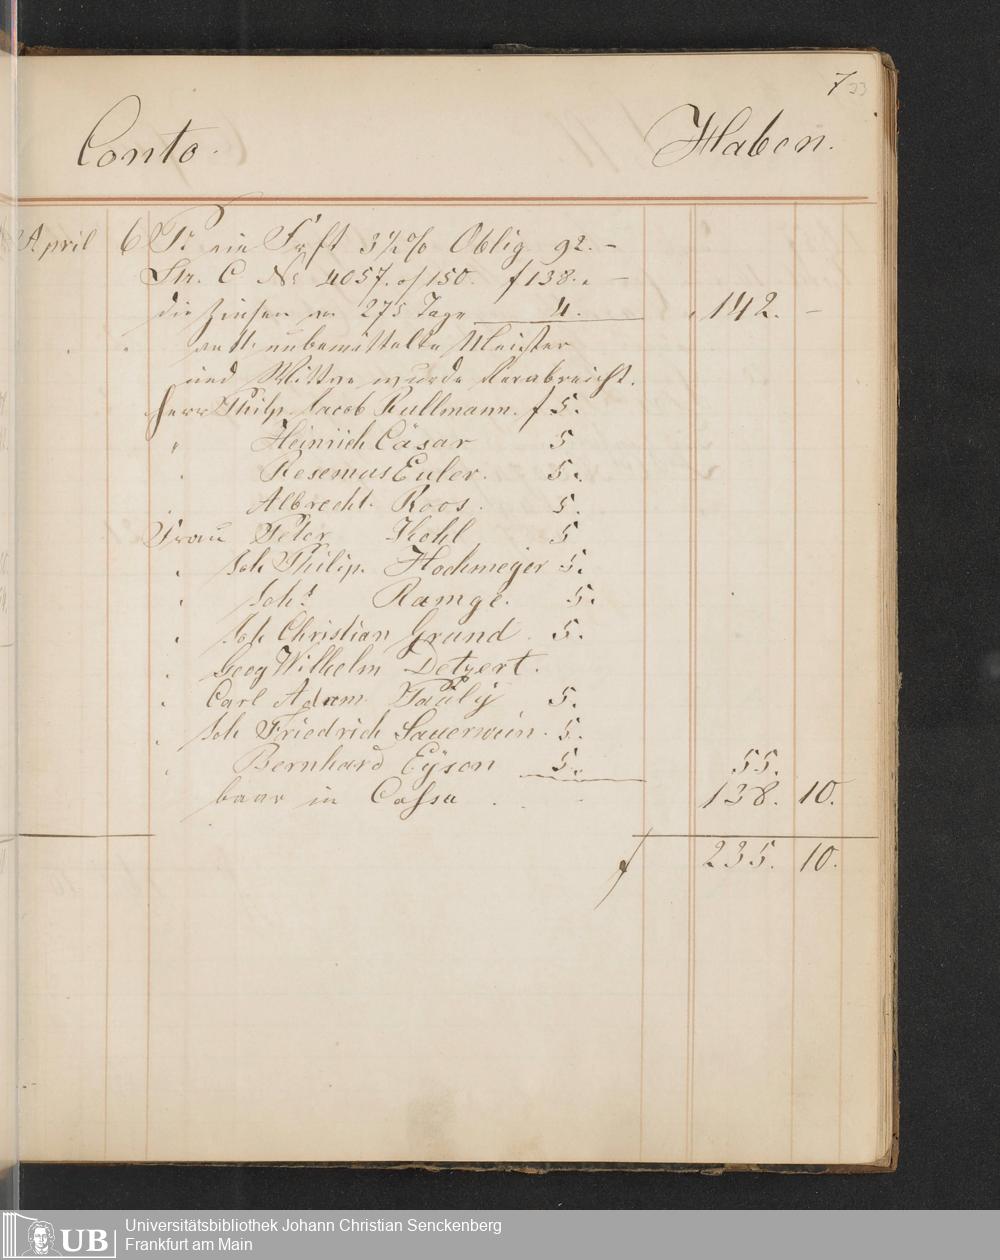 7 33
Conto. Haben.
April 6 Pr ein Frft 3½% Oblig. 92. –
Ltr. C. No 4057. of 150. f 138. –
die Zinsen von 275 Tage 4. 142. –
an 11 unbemittelte Meister
und Wittwe wurde verabreicht.
Herr Philp. Jacob Kullmann. f 5.
" Heinrich Cäsar 5
" Resemus Euler. 5.
Albrecht Roos. 5.
Frau Peter Kohl 5
" Joh Philip. Hochmeyer 5.
" Johs Ramge. 5.
" Joh Christian Grund. 5.
" Geog Wilhelm Detzert.
" Carl Adam Pauly 5.
" Joh Friedrich Sauerwein. 5.
" Bernhard Eyson 5. 55.
baar in Cassa 138. 10.
f 235. 10.
UB
Universitätsbibliothek Johann Christian Senckenberg
Frankfurt am Main